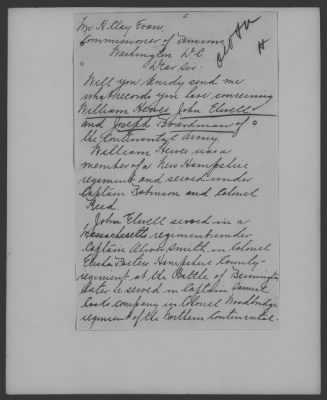 Mr H. Clay Evans
Commissioner of Pensions
Washington D.C.
Dear Sir.
Will you kindly send me
what records you have concerning
William John Elwell
and Joseph Boardman of
the Continental Army.
William was a
member of a New Hampshire
regiment and served under
Captain Robinson and Colonel
Reed.
John Elwell served in a
Massachusetts regiment under
Captain Oliver Smith in Colonel
Elisha Porters Hampshire County
regiment at the Battle of Bennington
Later he served in Captain Samuel
Cooks company in Colonel Woodbridge
regiment of the Northern Continental.